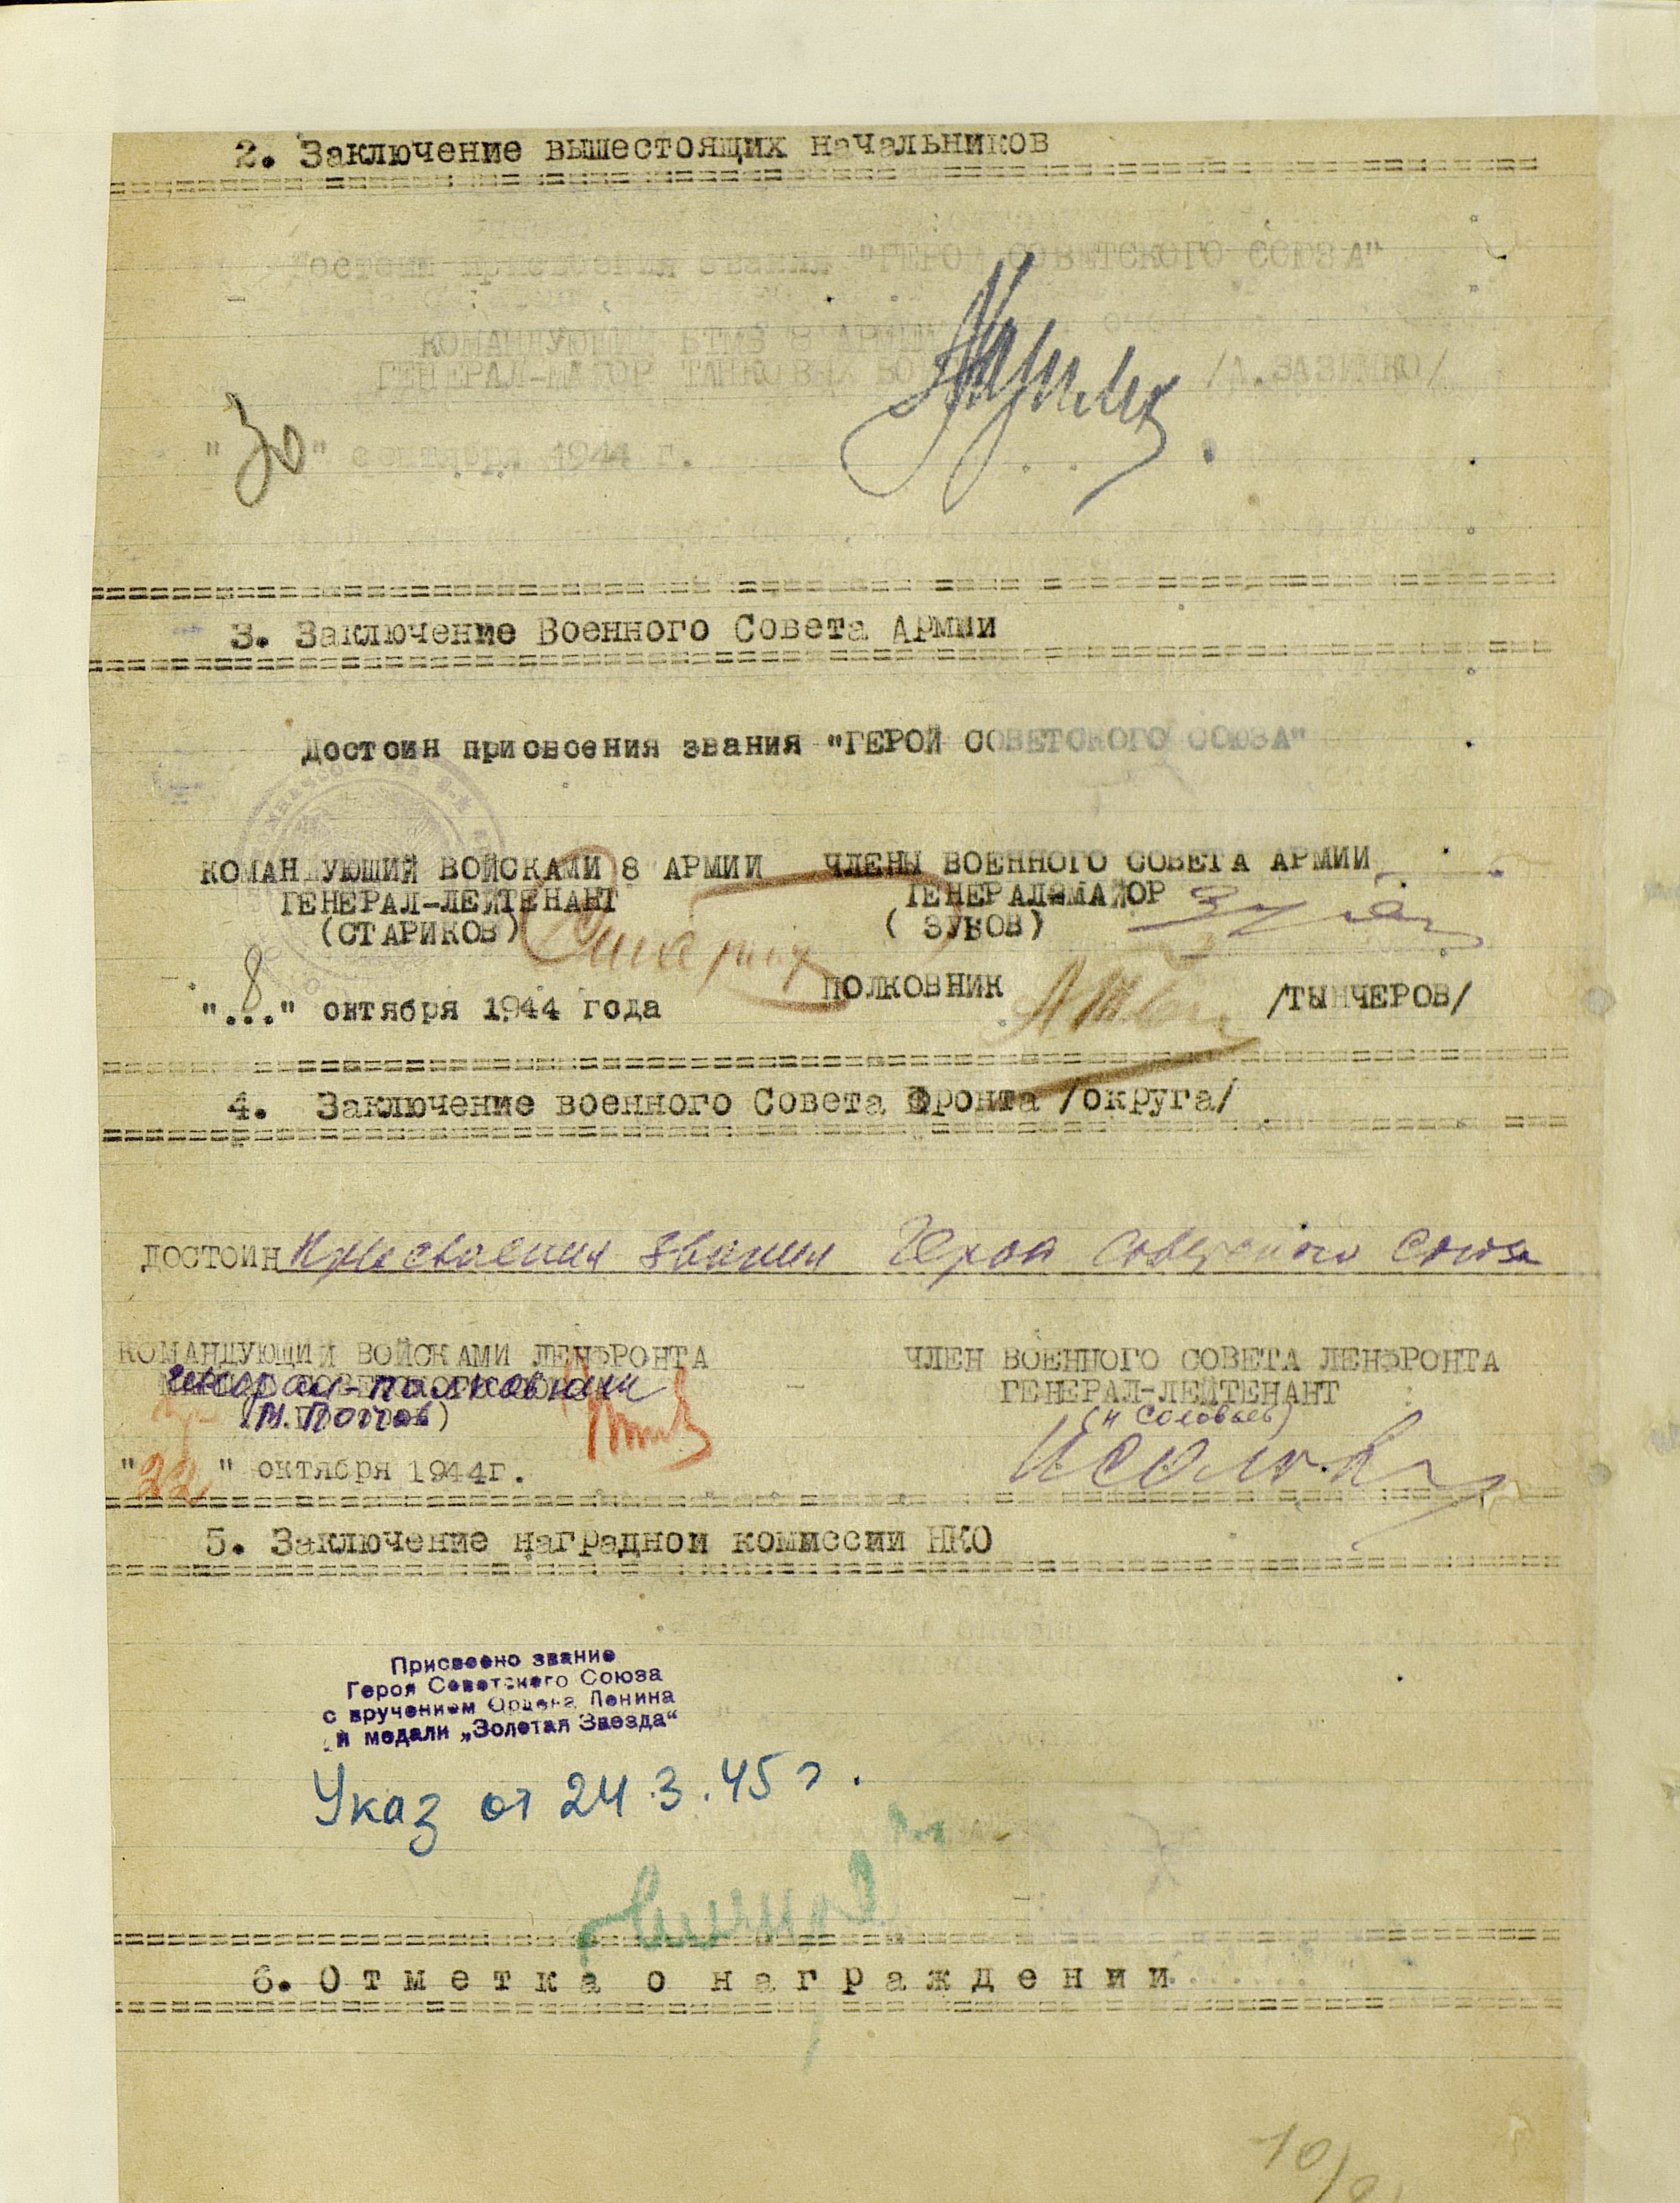 2. Заключение вышестоящих начальников
Достоин присвоения звания "ГЕРОЯ СОВЕТСКОГО СОЮЗА"
КОМАНДУЮЩИЙ БТМВ 8 АРМИИ
ГЕНЕРАЛ-МАЙОР ТАНКОВЫХ ВО /А.ЗАЗИМКО/
"30" сентября 1944 г.
3. Заключение Военного Совета Армии
Достоин присвоения звания "ГЕРОЙ СОВЕТСКОГО СОЮЗА"
КОМАНДУЮЩИЙ ВОЙСКАМИ 8 АРМИИ ЧЛЕНЫ ВОЕННОГО СОВЕТА АРМИИ
ГЕНЕРАЛ-ЛЕЙТЕНАНТ ГЕНЕРАЛ-МАЙОР
(СТАРИКОВ) ( ЗУБОВ)
ПОЛКОВНИК /ТЫНЧЕРОВ/
"8" октября 1944 года
4. Заключение военного Совета Фронта /округа/
ДОСТОИН присвоения звания Героя Советского Союза
КОМАНДУЮЩИЙ ВОЙСКАМИ ЛЕНФРОНТА ЧЛЕН ВОЕННОГО СОВЕТА ЛЕНФРОНТА
генерал-полковник ГЕНЕРАЛ-ЛЕЙТЕНАНТ
(М. Попов) (и Соловьев)
"22" октября 1944г.
5. Заключение наградной комиссии НКО
Присвоено звание
Героя Советского Союза
с вручением Ордена Ленина
и медали „Золотая Звезда“
Указ от 24.3.45 г.
6. Отметка о награждении.......